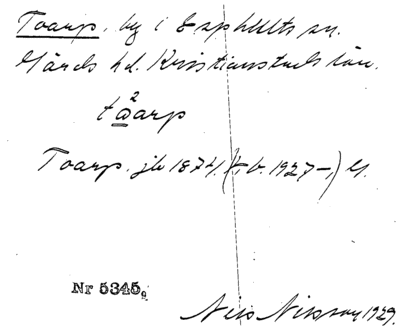 Toarp. by i Esphults sn.
Gärds hd. Kristianstads län.
tåarp
Toarp. jb 1874. (k. b. 1927 –,) G.
Nr 5345,
Nils Nilsson 1929.